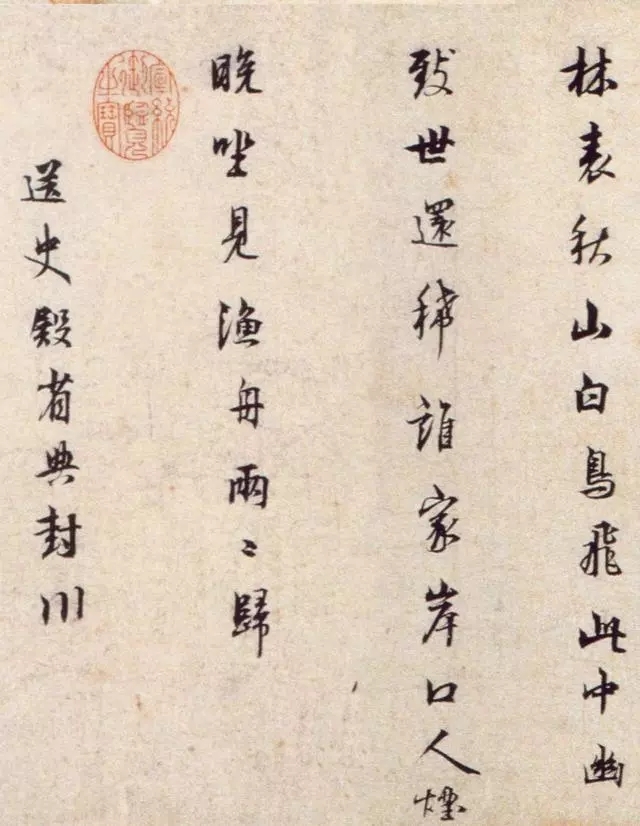 林表秋山白鳥飛此中幽
致世還稀誰家岸口人煙
晚坐見漁舟兩〻歸
宣統御覽之寶
送史殿省典封川